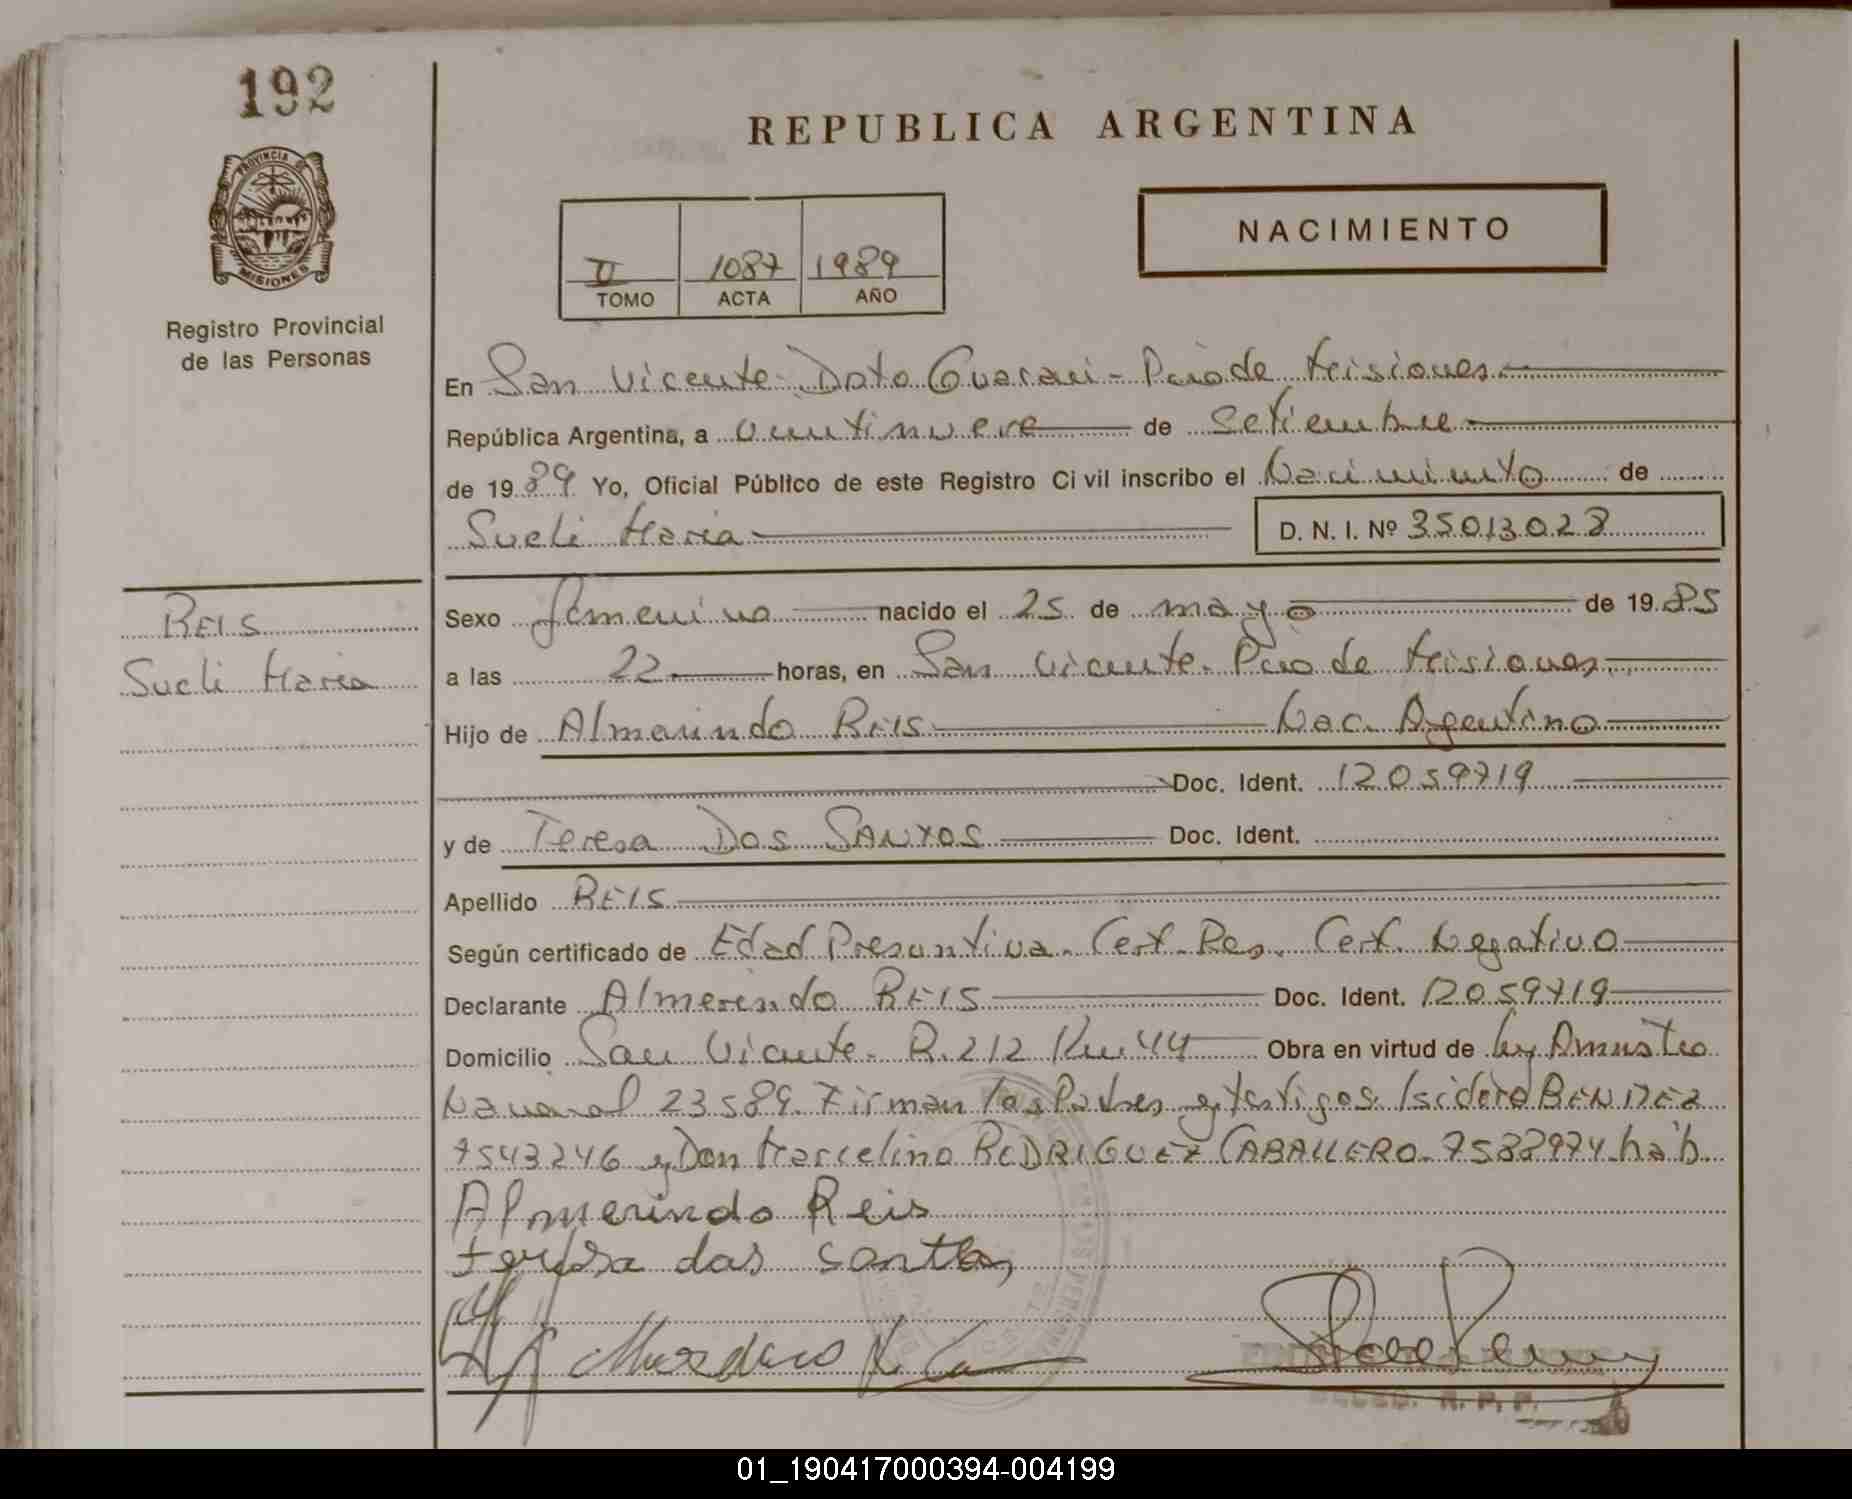 192
REPUBLICA ARGENTINA
PROVINCIA DE
MISIONES
Registro Provincial
de las Personas
II 1087 1989
TOMO ACTA AÑO
NACIMIENTO
En San Vicente Dpto Guarani - Pcia de Misiones
República Argentina, a veintinueve de Setiembre
de 1989 Yo, Oficial Público de este Registro Civil inscribo el Nacimiento de
Sueli Maria D. N. I. Nº 35013028
REIS
Sueli Maria
Sexo femenino nacido el 25 de mayo de 1985
a las 22 horas, en San Vicente. Pcia de Misiones
Hijo de Almerindo REIS Nac. Argentino
Doc. Ident. 12059719
y de Teresa Dos SANTOS Doc. Ident.
Apellido REIS
Según certificado de Edad Presuntiva. Cert. Res. Cert. Negativo
Declarante Almerindo REIS Doc. Ident. 12059719
Domicilio San Vicente. R. 212 Km 44 Obra en virtud de ley Amnistia
Nacional 23589. Firman los Padres y testigos. Isidoro BENITEZ
7543246 y Don Marcelino RODRIGUEZ CABALLERO. 7538974. háb.
Almerindo Reis
teresa dos santos
DELEG. R. P. P.
01_190417000394-004199